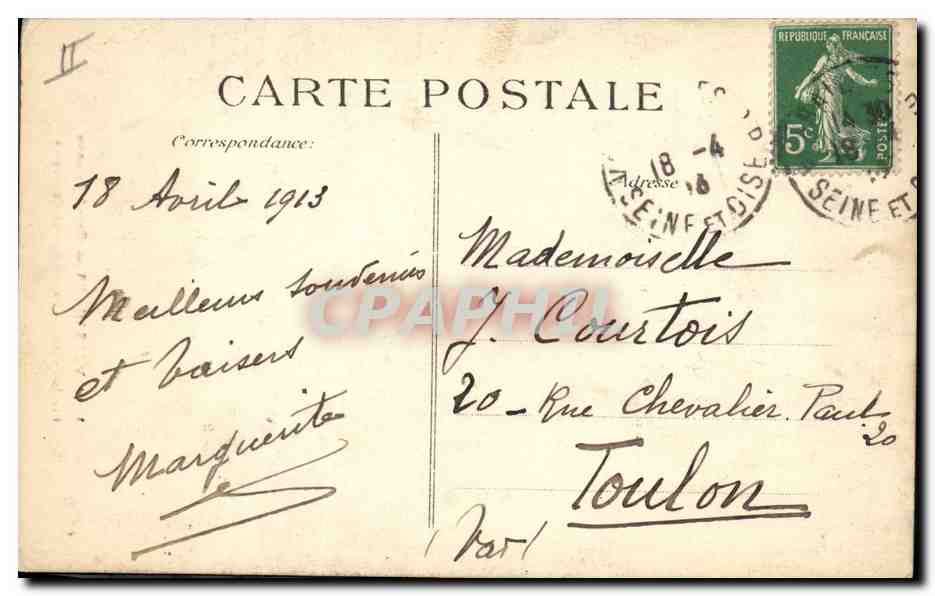 II
CARTE POSTALE
REPUBLIQUE FRANÇAISE
5c
POSTES
Correspondance:
Adresse
18 -4
SEINE ET OISE
SEINE ET
18 Avril 1913
Meilleurs souvenirs
et baisers
Marguerite
Mademoiselle
J. Courtois
20 - Rue Chevalier Paul
20
Toulon
(Var)
CPAPHIL